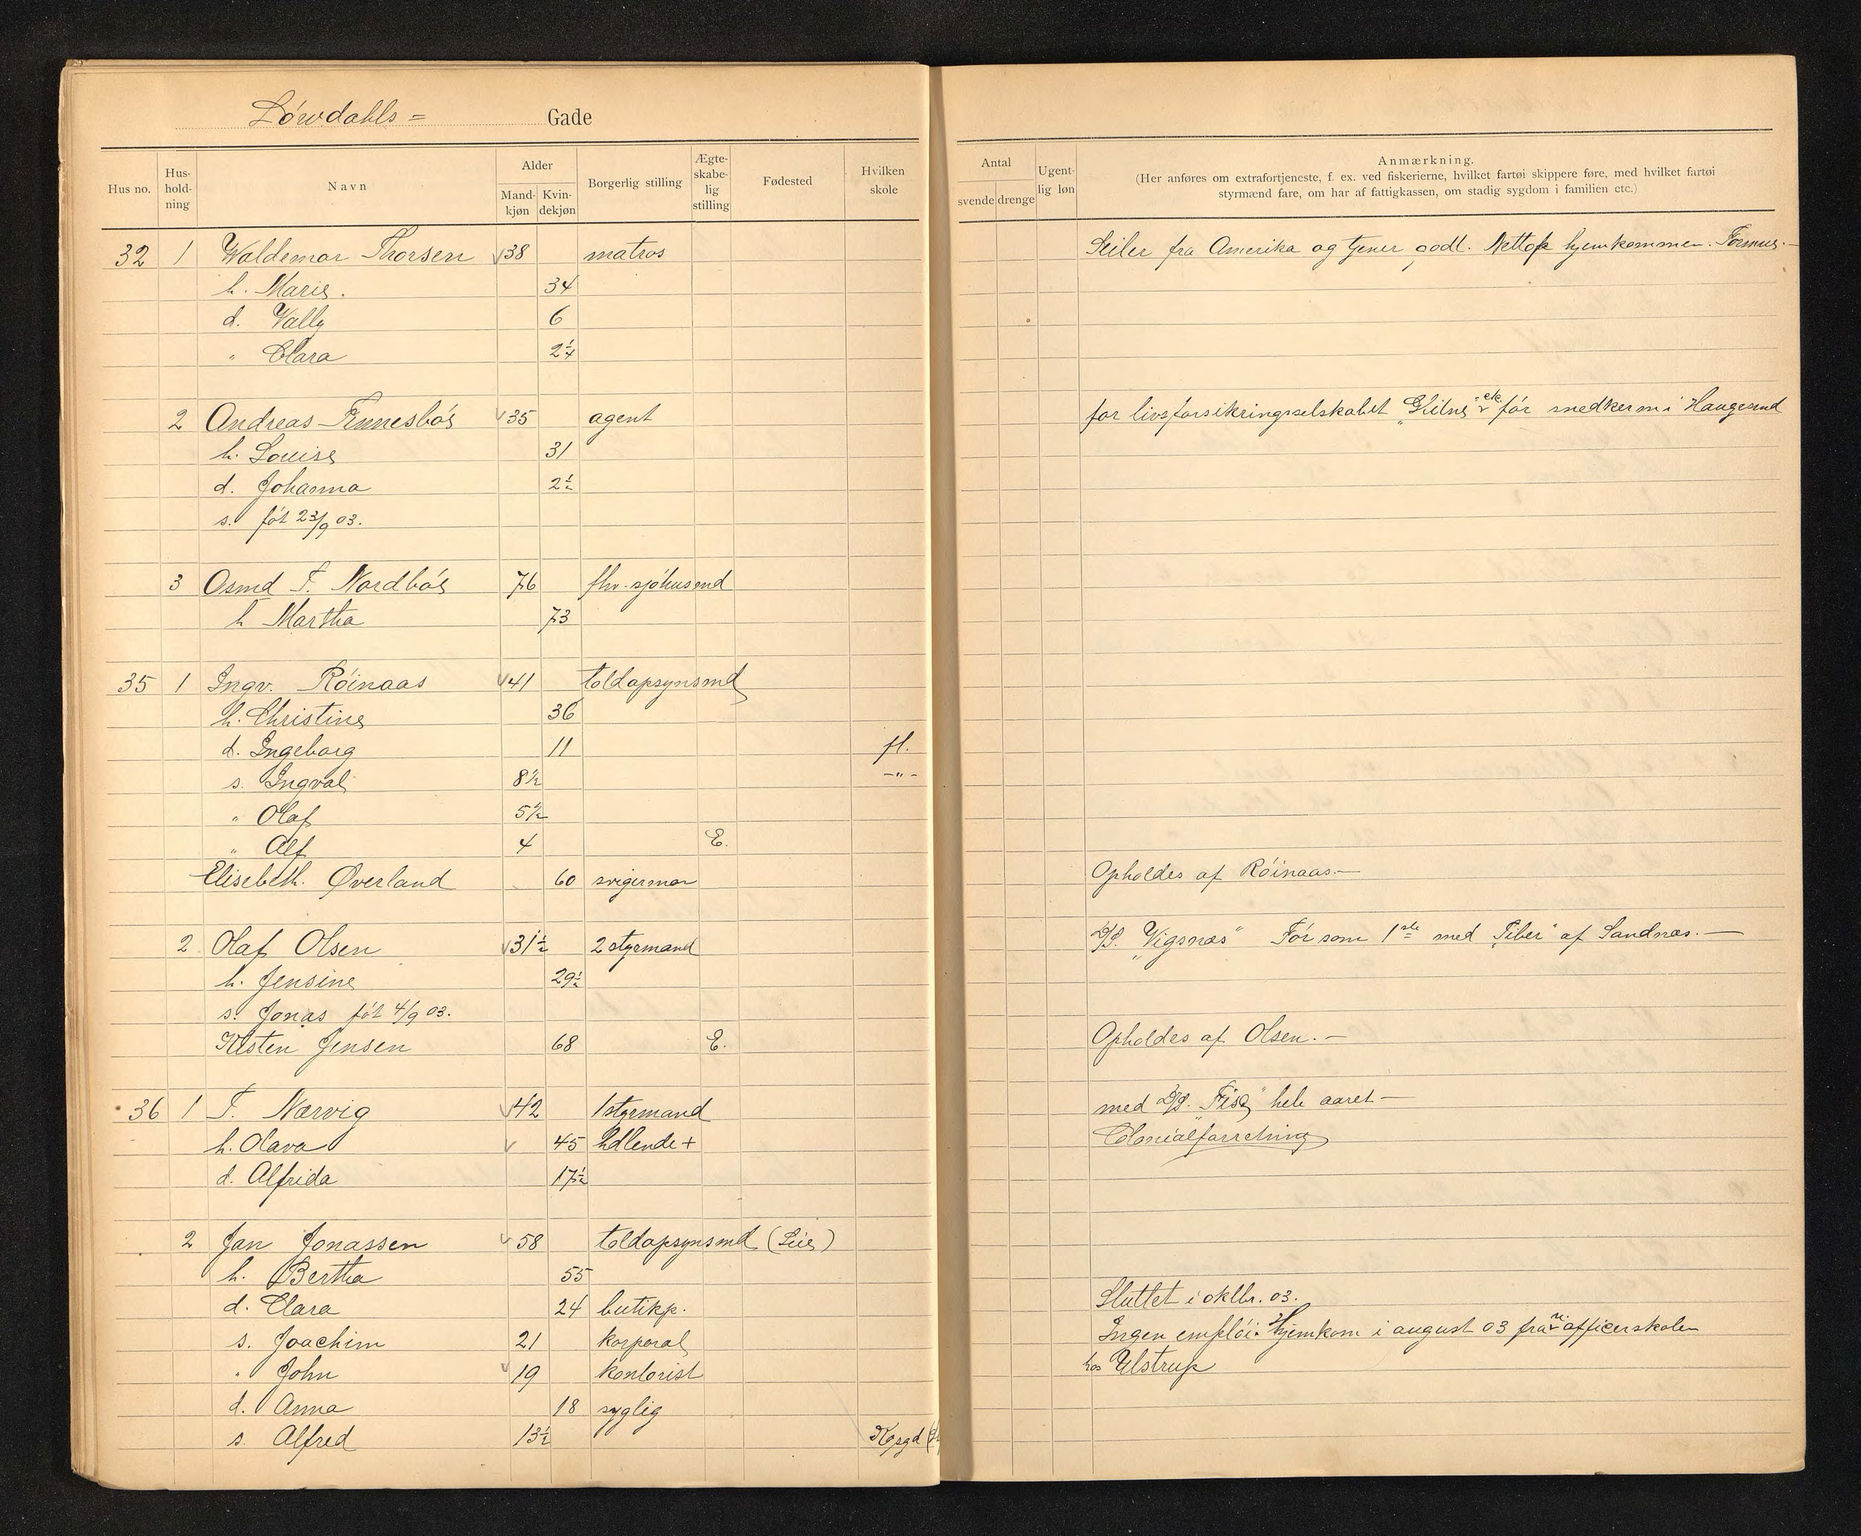 Løvdahls = Gade
Hus no. Hus-hold-ning Navn Alder Mand-kjøn Kvin-dekjøn Borgerlig stilling Ægte-skabe-lig stilling Fødested Hvilken skole
Antal svende drenge Ugent-lig løn Anmærkning.
(Her anføres om extrafortjeneste, f. ex. ved fiskerierne, hvilket fartøi skippere føre, med hvilket fartøi
styrmænd fare, om har af fattigkassen, om stadig sygdom i familien etc.)
32 1 Waldemar Thorsen 38 matros Seiler fra Amerika og tjener godt. Nettop hjemkommen.
h. Marie. 34
d. Vally 6
" Clara 2¼
2 Andreas Finnesbø 35 agent for livsforsikringsselskabet før snedker i Haugesund
h. Louise 31
d. Johanna 2½
s. føt 23/9 03.
3 Osmd T. Nordbø 76 fhv. sjøhusmd
h Martha 73
35 1 Ingv. Røinaas 41 toldopsynsmd
h. Christine 36
d. Ingeborg 11 fl.
s. Ingval 8½ -"-
" Olaf 5½
" Alf 4 E.
Elisebeth. Øverland 60 svigermor Opholdes af Røinaas.—
2 Olaf Olsen 31½ 2 styrmand D/S. "Vigsnæs" Før som 1ste med "Tiber" af Sandnæs.—
h. Jensine 29½
s. Jonas føt 4/9 03.
Kisten Jensen 68 E. Opholdes af Olsen.—
36 1 T. Nærvig 42 1 styrmand med D/S. hele aaret —
h. Olava 45 hdlende + Colonialforretning
d. Alfrida 17½
2 Jan Jonassen 58 toldopsynsmd
h. Bertha 55
d. Clara 24 butikp. Sluttet i oktbr. 03.
s. Joachim 21 korporal Ingen empløi. Hjemkom i august 03 fra officerskolen
" John 19 kontorist hos Ulstrup
d. Anna 18 syglig
s. Alfred 13½ Kpsgd